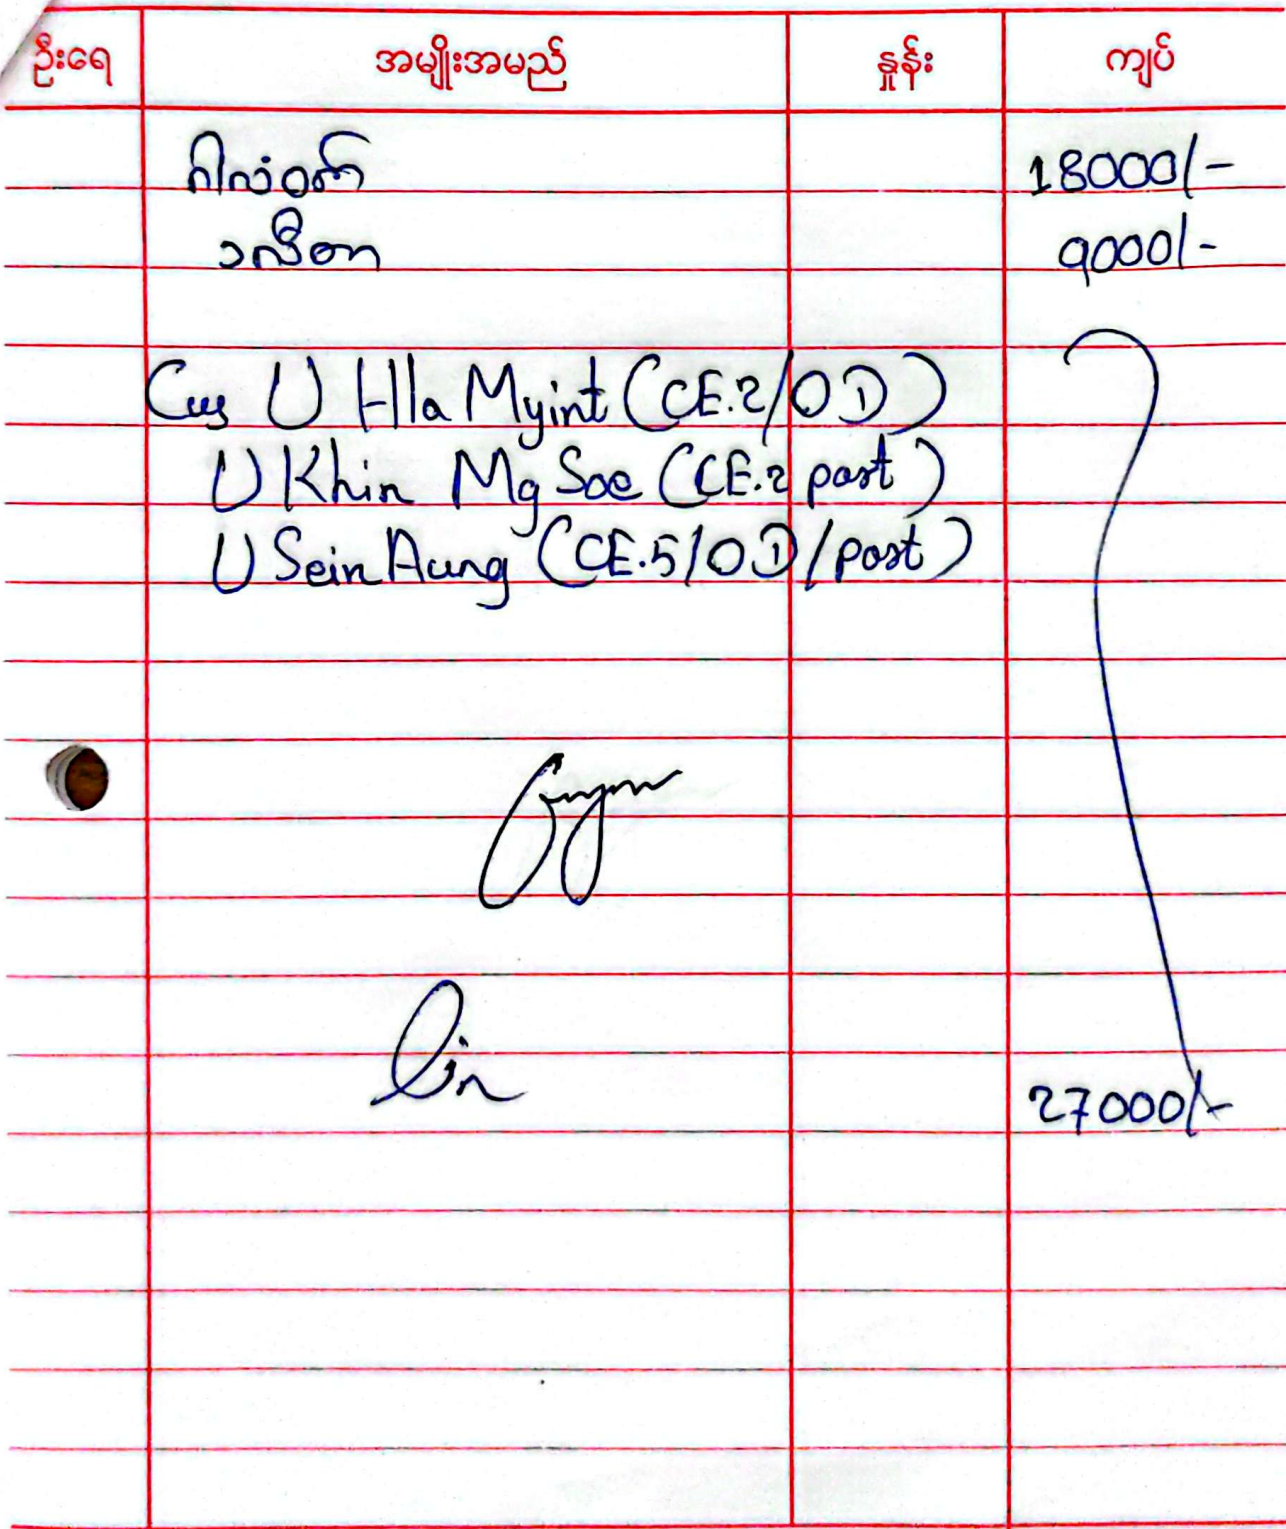 ဦးရေ အမျိုးအမည် နှုန်း ကျပ်
ဂါလံဝက် 18000/-
၁လီတာ 9000/-
Cus U Hla Myint (CE.2/OD)
U Khin Mg Soe (CE.2 post)
U Sein Aung (CE.5/OD/post)
lin
27000/-